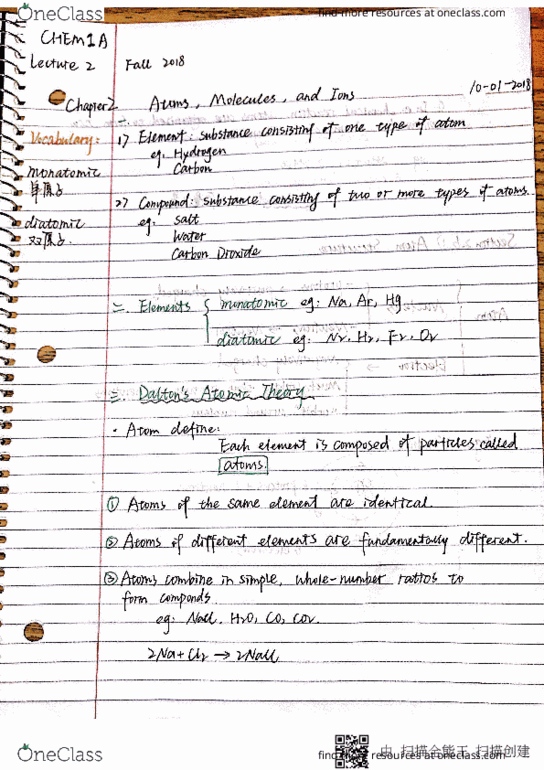 OneClass
find more resources at oneclass.com
CHEM1A
Lecture 2 Fall 2018
10-01-2018
Chapter2 Atoms, Molecules, and Ions
一.
Vocabulary: 1) Element: substance consisting of one type of atom
eg. Hydrogen
monatomic Carbon
单原子
2) Compound: substance consisting of two or more types of atoms.
diatomic eg: Salt
双原子. Water
Carbon Dioxide
二. Elements { monatomic eg: Na, Ar, Hg
diatomic eg: N2, H2, F2, O2
三. Dalton's Atomic Theory
· Atom define:
Each element is composed of particles called
atoms.
① Atoms of the same element are identical.
② Atoms of different elements are fundamentally different.
③ Atoms combine in simple, whole-number ratios to
form componds
eg: NaCl, H2O, CO, CO2.
2Na+Cl2 → 2NaCl
OneClass
find more resources at oneclass.com
由 扫描全能王 扫描创建